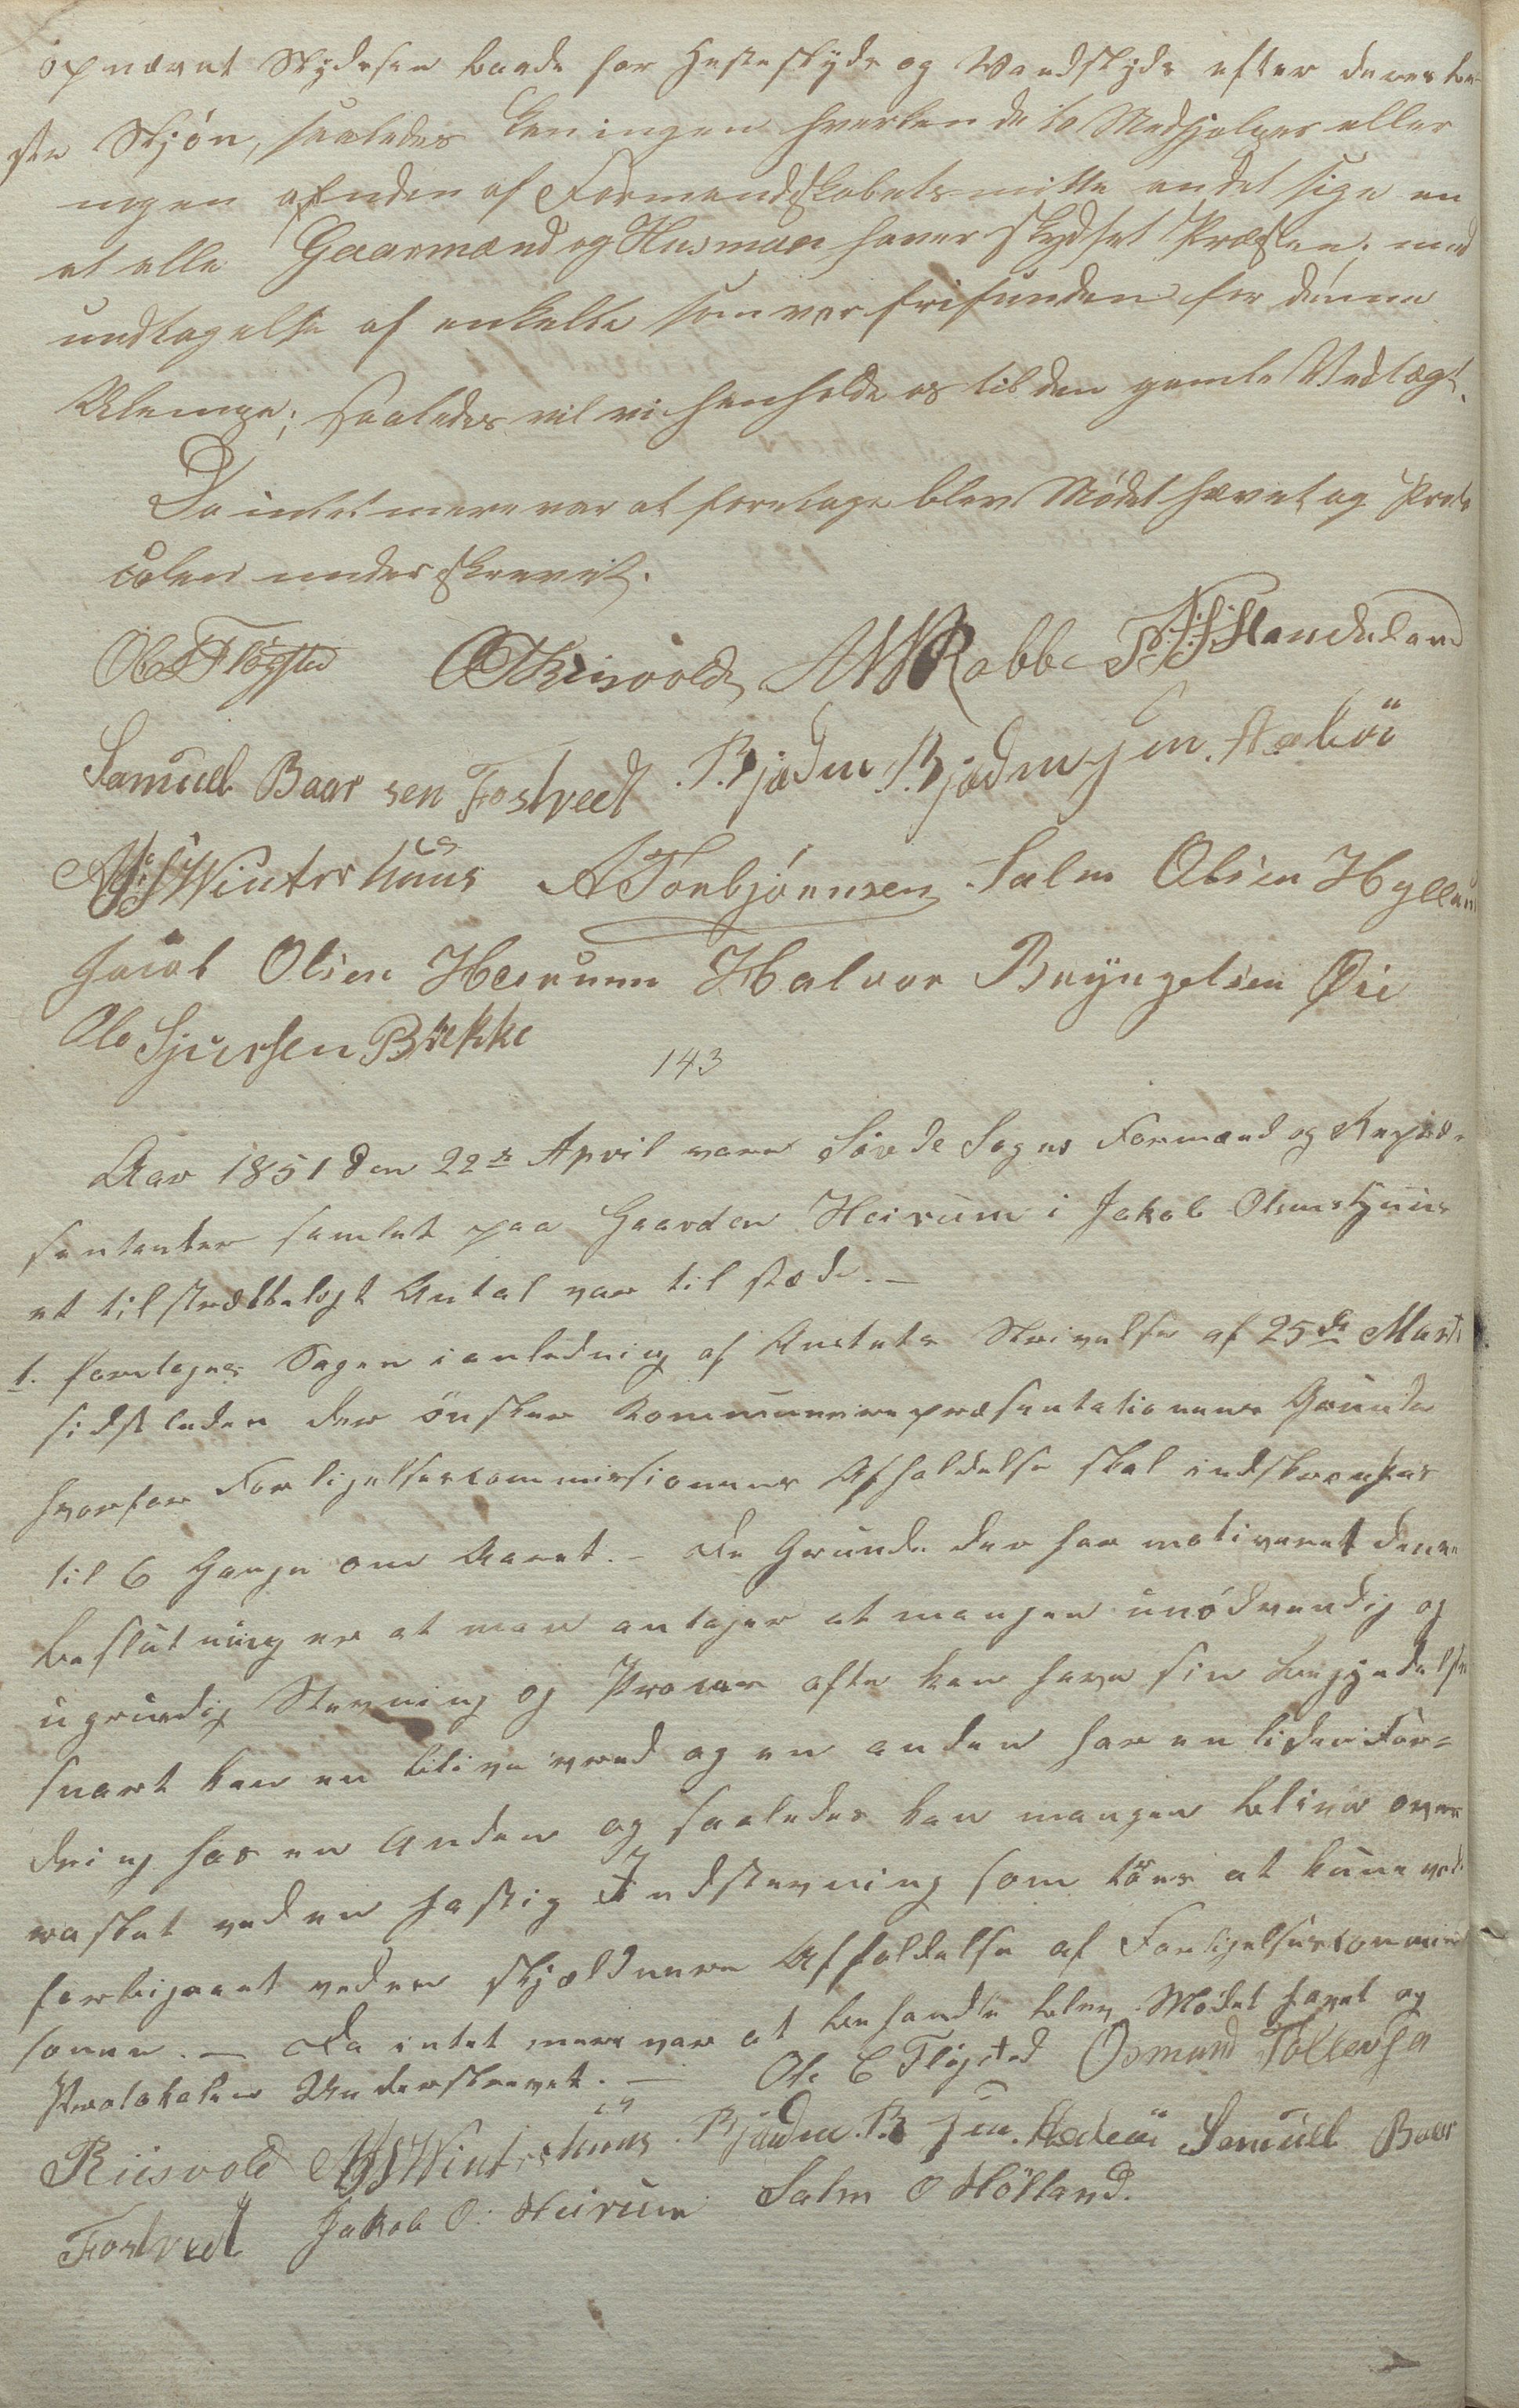 opnævnt Skydsen baade for Hesteskyds og Vandskyds efter deres be-
ste Skjøn, saaledes kan ingen hverken de to Medhjelper eller
nogen anden af Formandskabets mitte andet sige en
at alle Gaarmænd og Husmæn haver skydset Præsten, med
undtagelse af enkelte som var frifunden for denne
Ulempe; saaledes vil vi henholde os til den gamle Vedtægt.
Da intet mere var at foretage blev Mødet hævet og Proto
colen underskrevit.
Ole Fløgsted O Riisvolds Rabbe Handeland
Samuel Baarsen Fostvedt Bjaden Bjadensen Aabøe
Winterhuus A Torbjørnsen Salm Olsen Hylland
Jacob Olsen Heirum Halvor Bryngelsen Øie
Ole Sjursen Brekke
143
Aar 1851 den 22de April vare Søvde Sogns Formænd og Repræ-
sentanter samlet paa Gaarden Heirum i Jakob Olsens Huus
et tilstrækkeligt Antal var til stæde. —
1. foretages Sagen i anledning af Amtets Skrivelse af 25de Marts
sidstleden der ønsker Kommunerepræsentationens Grunde
hvorfor Forligelsescommissionens Afholdelse skal indskrænkes
til 6 Gange om Aaret. — De Grunde der har motiveret denne
beslutning er at man antager at mangen unødvendig og
ugrundig Stevning og Proces ofte kan have sin begyndelse
snart kan en blive vred og en anden har en liden For=
dring hos en Anden og saaledes kan mangen blive over
rasket ved en hastig Indstevning som tørs at kunne være
forbigaaet ved en skjældnere Afholdelse af Forligelsescommis
sionen. — Da intet mere var at behandle blev Mødet hævet og
Protokolen Underskrevet. — Ole C Fløgsted Osmund Tollevsen
Riisvold Winterhuus Bjaden B sen. Aabøe Samuel Baar
Fostvedt Jakob O. Heirum Salm O Hölland.